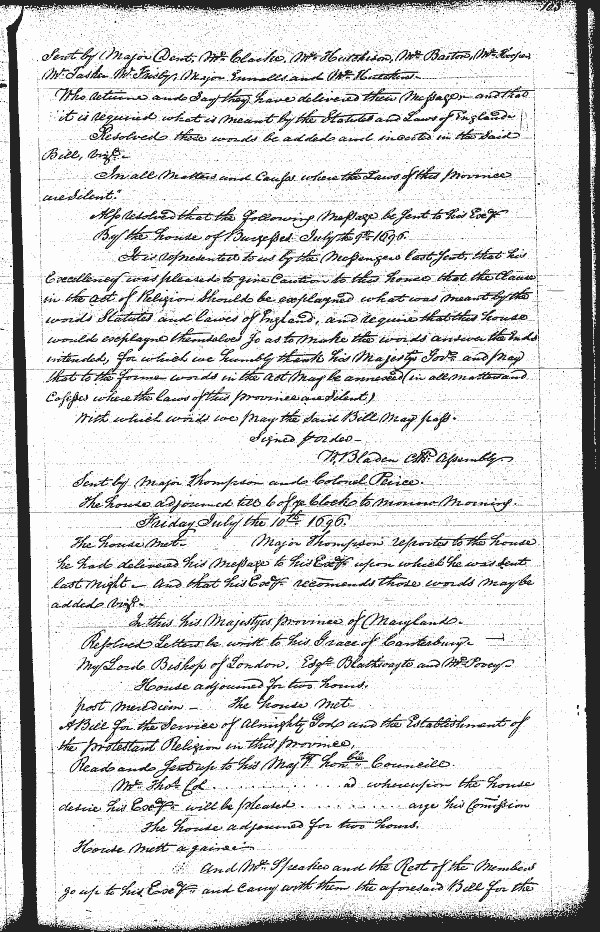 183
Sent by Major Dent, Mr. Clarke, Mr. Hutchison, Mr. Barton, Mr. Hooper
Mr. Tasker Mr. Frisby, Major Ennalls and Mr. Hutchins
Who returne and Say they have delivered their Message and that
it is required what is meant by the Statutes and Laws of England
Resolved these words be added and incerted in the Said
Bill, vizt.
In all Matters and Causes where the Laws of this province
are Silent."
Also resolved that the following Message be Sent to his Excy.
By the house of Burgesses July the 9th 1696.
It is represented to us by the Messengers last Sent, that his
Excellency was pleased to give Caution to this house that the Clause
in the act of Religion Should be explayned what was meant by the
words Statutes and Lawes of England, and require that this house
would explayne themselves so as to make the words answer the Ends
intended, for which we humbly thank his Majesty Govr. and pray
that to the former words in the act May be annexed (in all matters and
Causes where the laws of this province are Silent)
With which words we pray the Said Bill May pass.
Signed p order
W. Bladen Clk. Assembly
Sent by Major Thompson and Colonel Peirce.
The house adjourned till 6 of ye Clock to morrow Morning.
Friday July the 10th. 1696.
The house Mett. Major Thompson reportes to the house
he had delivered his Message to his Excy. upon which he was Sent
last Night. And that his Excy. recomends those words may be
added vizt.
In this his Majestyes province of Maryland.
Resolved Letters be writt to his Grace of Canterbury
My Lord Bishop of London, Esqr. Blathwayte and Mr. Povey
House adjourned for two hours.
post meridiem The house Mett
A Bill for the Service of Almighty God and the Establishment of
the protestant Religion in this province,
Read and Sent up to his Majtys. honble Councill.
Mr. Thos. Col . . . . . . . . . . . . . . . . ad whereupon the house
desire his Excy. will be pleased . . . . . . . . . arge his Comission
The house adjourned for two hours.
House Mett againe
And Mr. Speaker and the Rest of the Members
go up to his Excy. and carry with them the aforesaid Bill for the